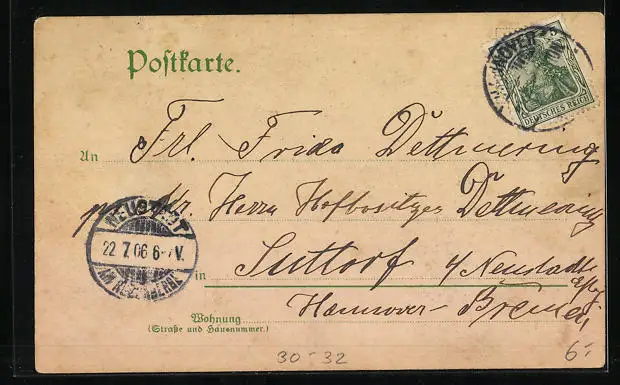 Postkarte.
DEUTSCHES REICH
An Frl. Frida Dettmering
Herrn Hofbesitzer Dettmering
NEUSTADT
22.7.06 6-7V.
AM RÜBENBERGE
in Suttorf b/Neustadt
Hannover-Bremen
Wohnung
(Straße und Hausnummer.)
30-32
6,-